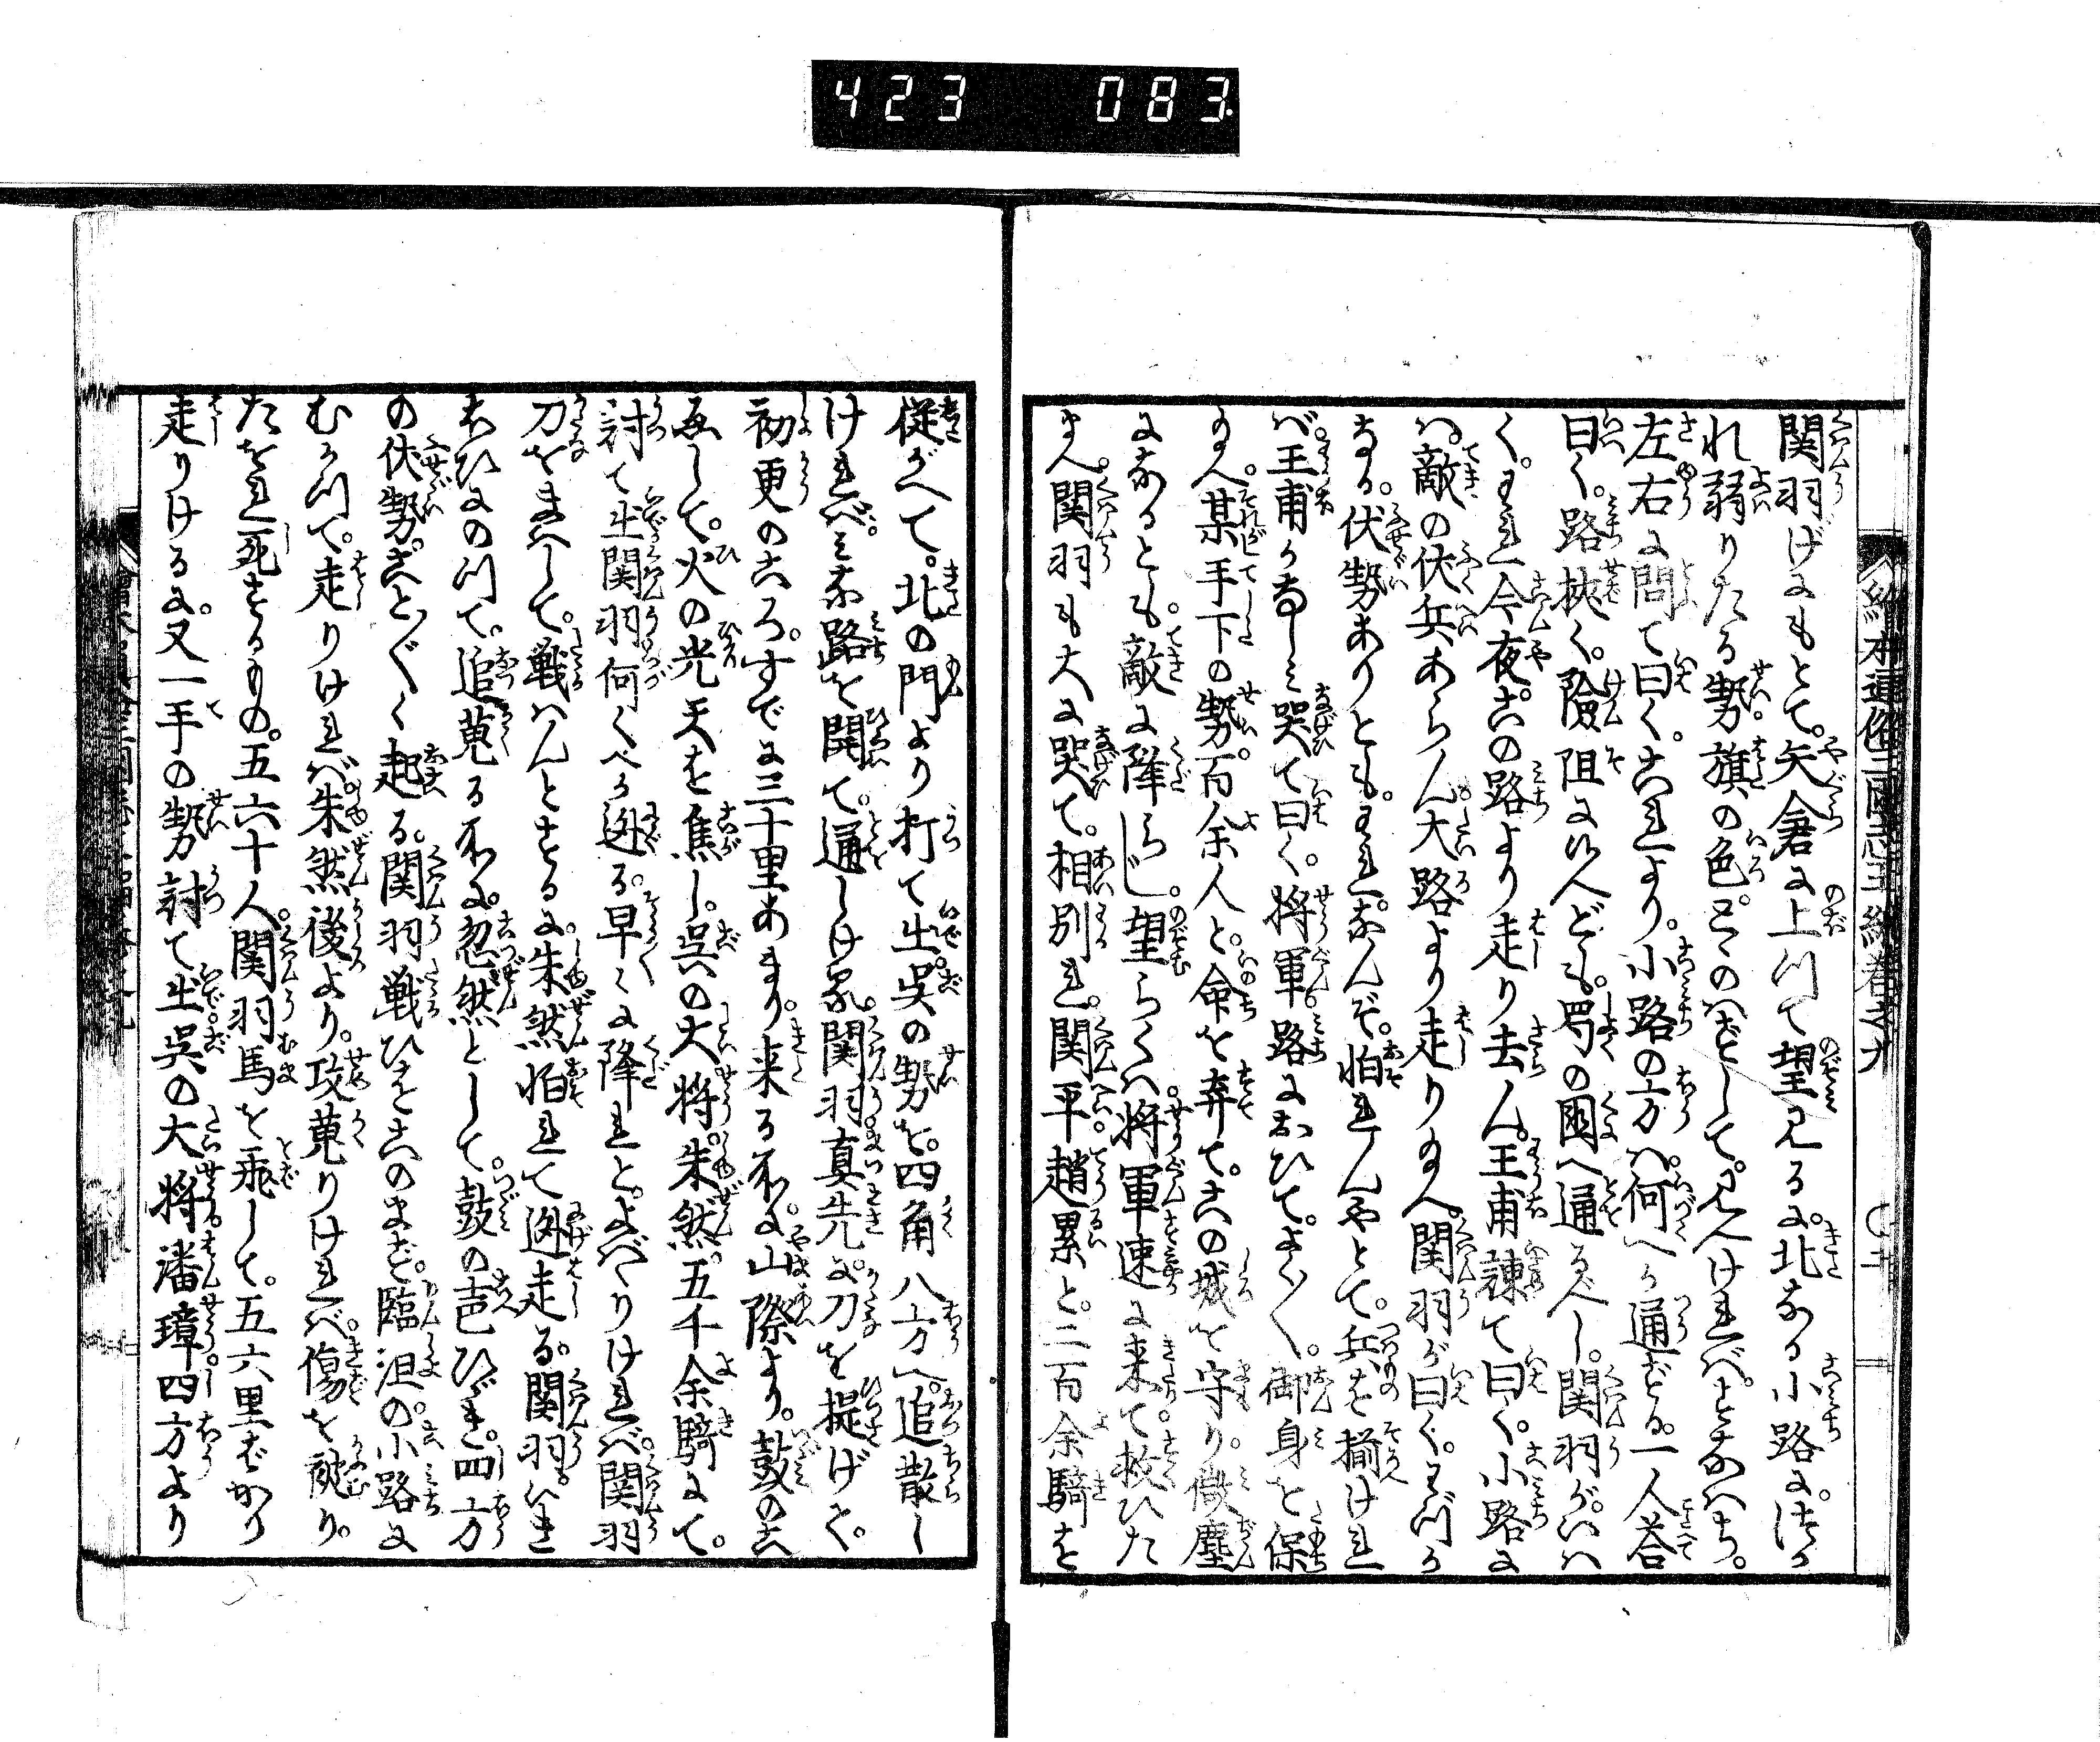 423 083
絵本通俗三国志五編巻之九
関羽げにもとて。矢倉に上つて望見るに。北なる小路に。つか
れ弱りたる勢。旗の色とゝのはずして。見へければ。すなはち。
左右に問て曰く。これより。小路の方へ。何へか通ずる。一人答
曰く。路狭く。険阻に候へども。蜀の国へ通ずべし。関羽が。いは
く。われ今夜この路より走り去ん。王甫諫て曰く。小路に
は。敵の伏兵あらん。大路より走り給へ。関羽が曰く。われが
なる。伏勢ありとも。われ。なんぞ。怕れんやとて。兵を揃けれ
ば。王甫かなしミ哭て曰く。将軍路におひて。よく〳〵。御身を保
給へ。某手下の勢。百余人と。命を弃て。この城を守り。微塵
になるとも。敵に降らじ。望らくハ将軍速に来て救ひた
まへ。関羽も大に哭て。相別れ。関平趙累と。二百余騎を
従がへて。北の門より打て出。呉の勢を。四角八方へ。追散し
けれバ。ミな路を開て。通しける。関羽真先に刀を提げて。
初更のころ。すでに三十里あまり。来る所に。山際より。鼓のこへ
して。火の光天を焦し。呉の大将。朱然。五千余騎にて。
討て出関羽何くへか逃る。早〻に降れと。よばゝりければ。関羽
刀をまはして。戦ハんとするに。朱然怕れて逃走る。関羽。いき
おひにのつて。追蒐る所に。忽然として。鼓の声ひゞき。四方
の伏勢。こと〴〵く起る。関羽戦ひをこのまず。臨沮の小路に
むかつて。走りければ。朱然後より。攻蒐りければ。傷を被り。
たをれ死するもの。五六十人。関羽馬を飛して。五六里ばかり
走りけるに。又一手の勢討て出。呉の大将潘璋。四方より